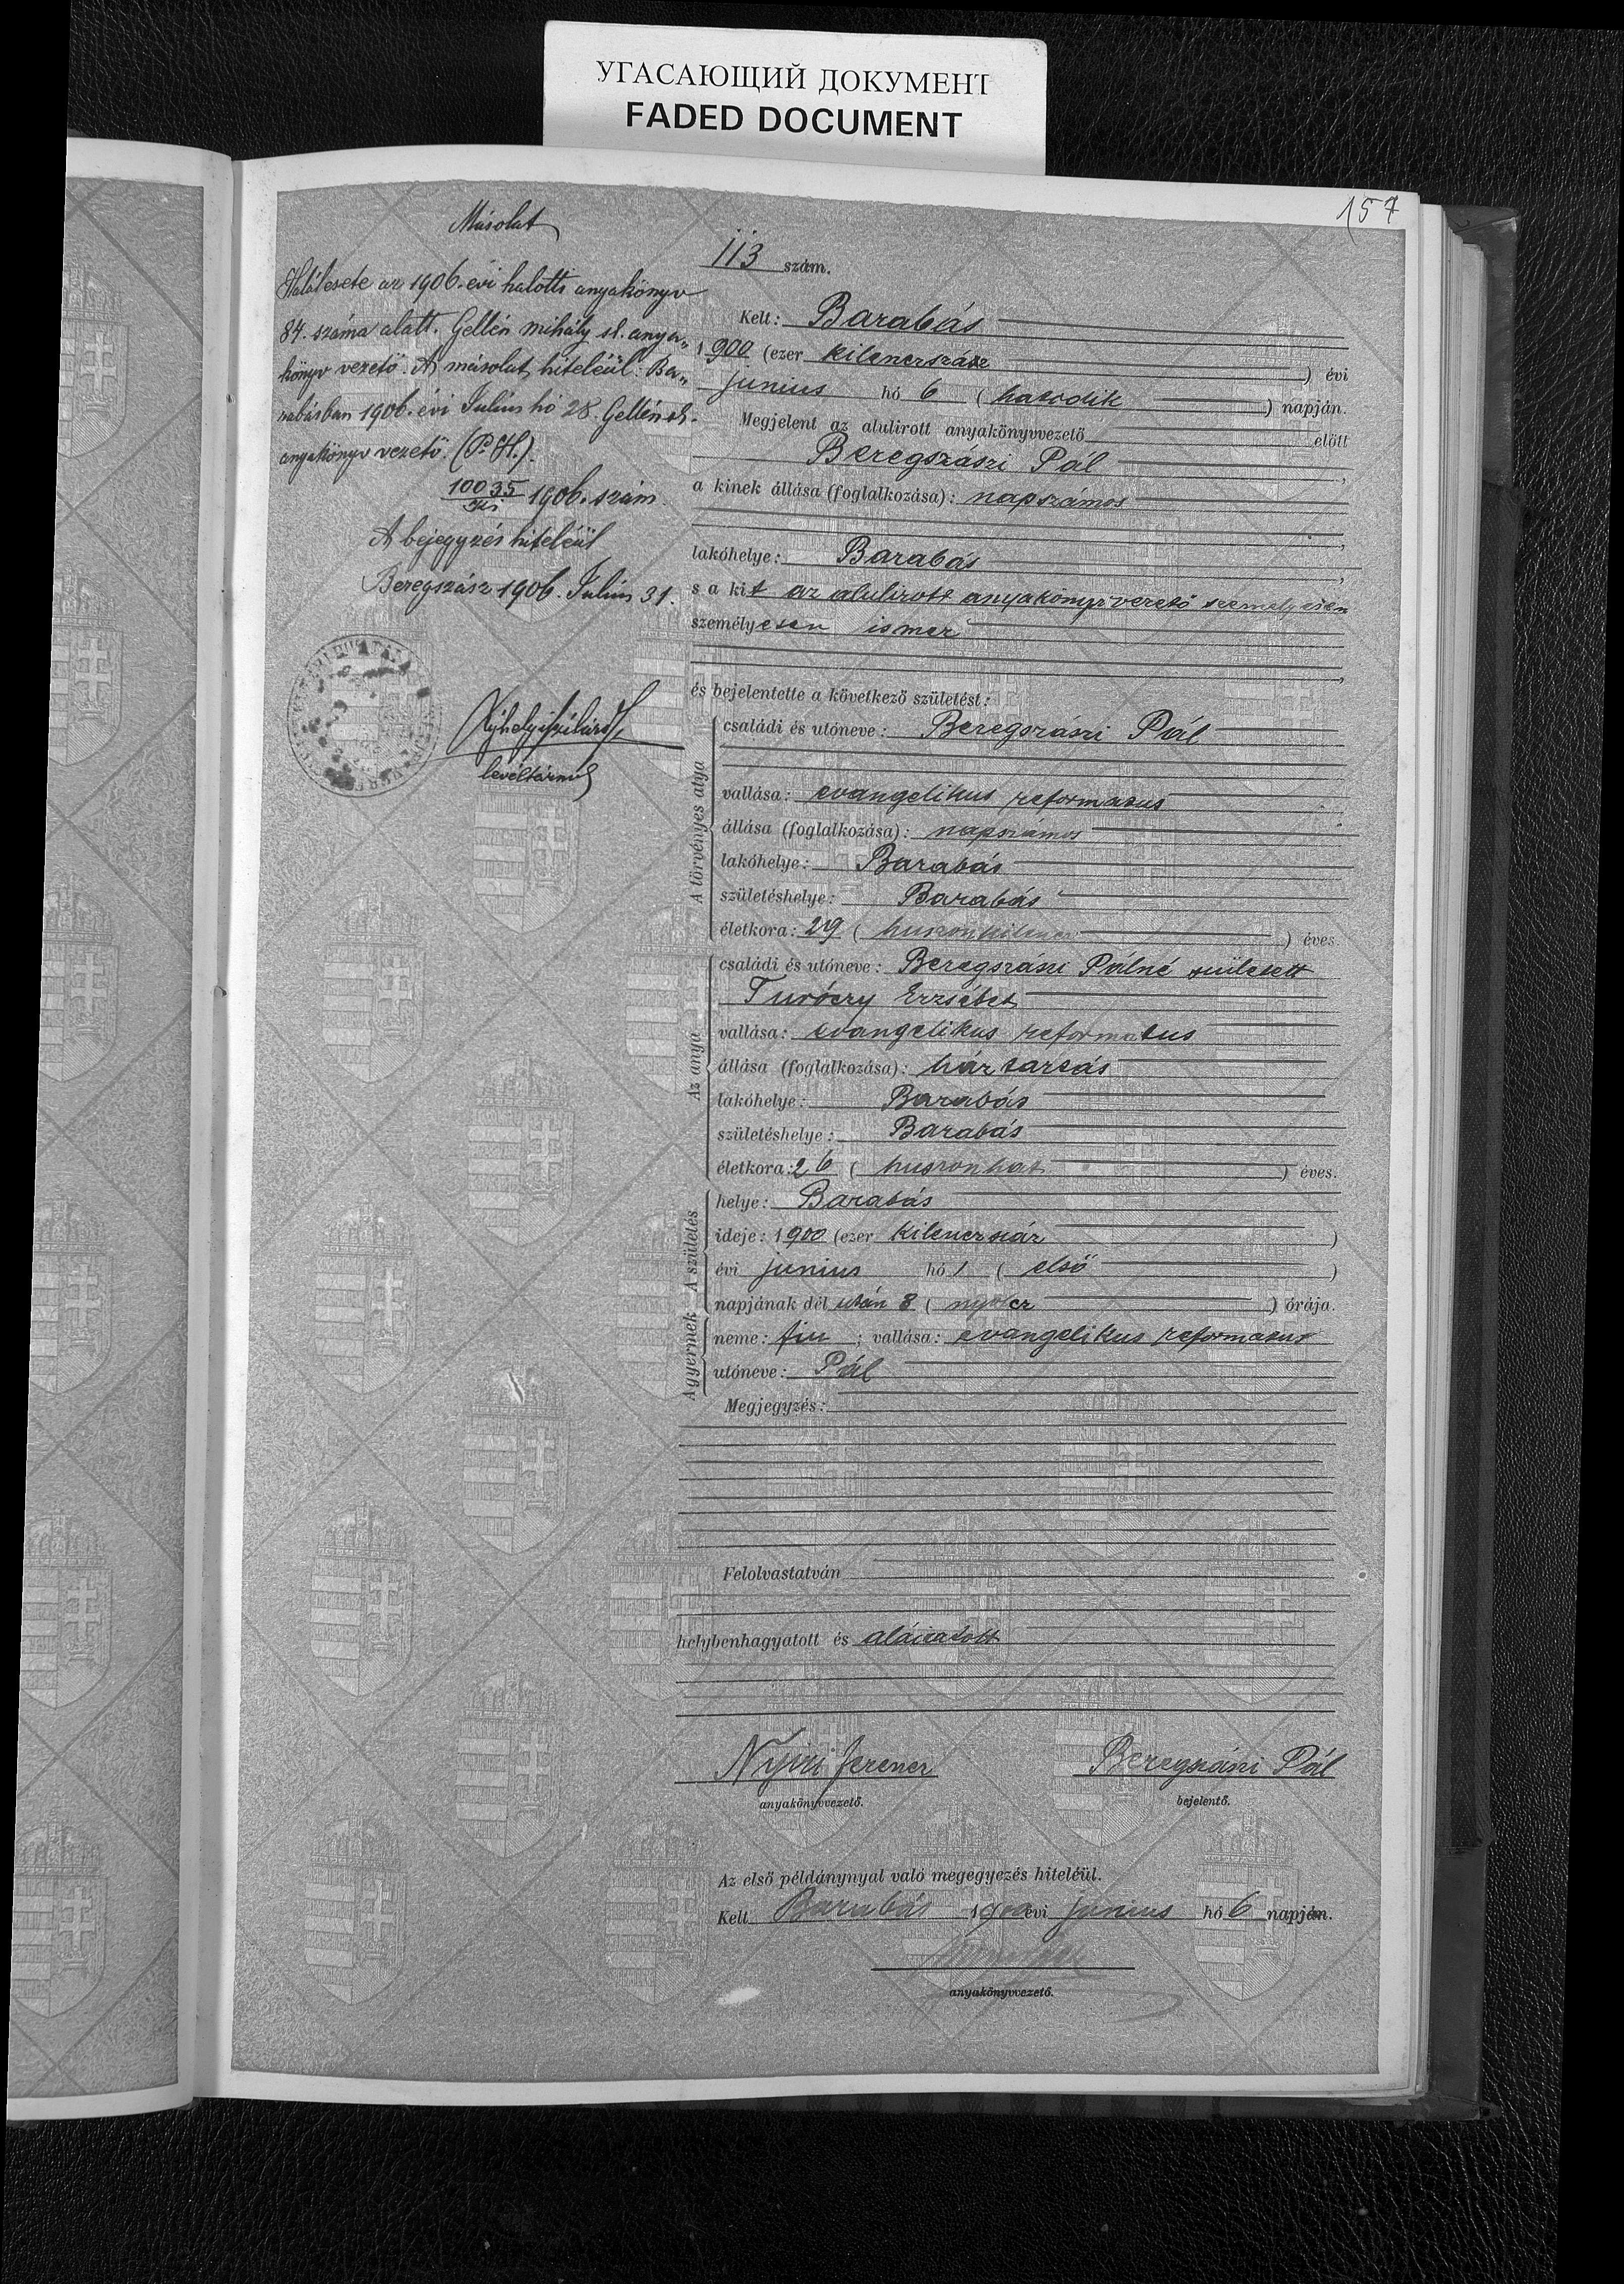 УГАСАЮЩИЙ ДОКУМЕНТ
FADED DOCUMENT
157
Másolat
Halálesete az 1906. évi halotti anyakönyv
84. száma alatt. Gellén mihály st. anya„
könyv vezető. A másolat hiteléül: Ba„
rabásban 1906. évi Július hó 28. Gellén st.
anyakönyv vezető. (P. H.).
10035 1906. szám.
A bejegyzés hiteléül
Beregszász 1906. Július 31.
levéltárnok
113 szám.
Kelt: Barabás
1900 (ezer kilencszász) évi
junius hó 6 (hatodik) napján.
Megjelent az alulirott anyakönyvvezető előtt
Beregszászi Pál,
a kinek állása (foglalkozása): napszámos
lakóhelye: Barabás,
s a kit az alulirott anyakönyvvezető személyesen
személyesen ismer
és bejelentette a következő születést:
A törvényes atya
családi és utóneve: Beregszászi Pál
vallása: evangelikus reformatus
állása (foglalkozása): napszámos
lakóhelye: Barabás
születéshelye: Barabás
életkora: 29 (huszonkilenc) éves.
Az anya
családi és utóneve: Beregszászi Pálné született
Turóczy Erzsébet
vallása: evangelikus reformatus
állása (foglalkozása): háztartás
lakóhelye: Barabás
születéshelye: Barabás
életkora: 26 (huszonhat) éves.
A születés
helye: Barabás
ideje: 1900 (ezer kilencszáz)
évi junius hó 1 (első)
napjának dél után 8 (nyolcz) órája.
A gyermek
neme: fiu; vallása: evangelikus reformatus
utóneve: Pál
Megjegyzés:
Felolvastatván
helybenhagyatott és aláiratott
Nyiri Ferencz Beregszászi Pál
anyakönyvvezető. bejelentő.
Az első példánynyal való megegyezés hiteléül.
Kelt Barabás 1900 évi junius hó 6 napján.
anyakönyvvezető.